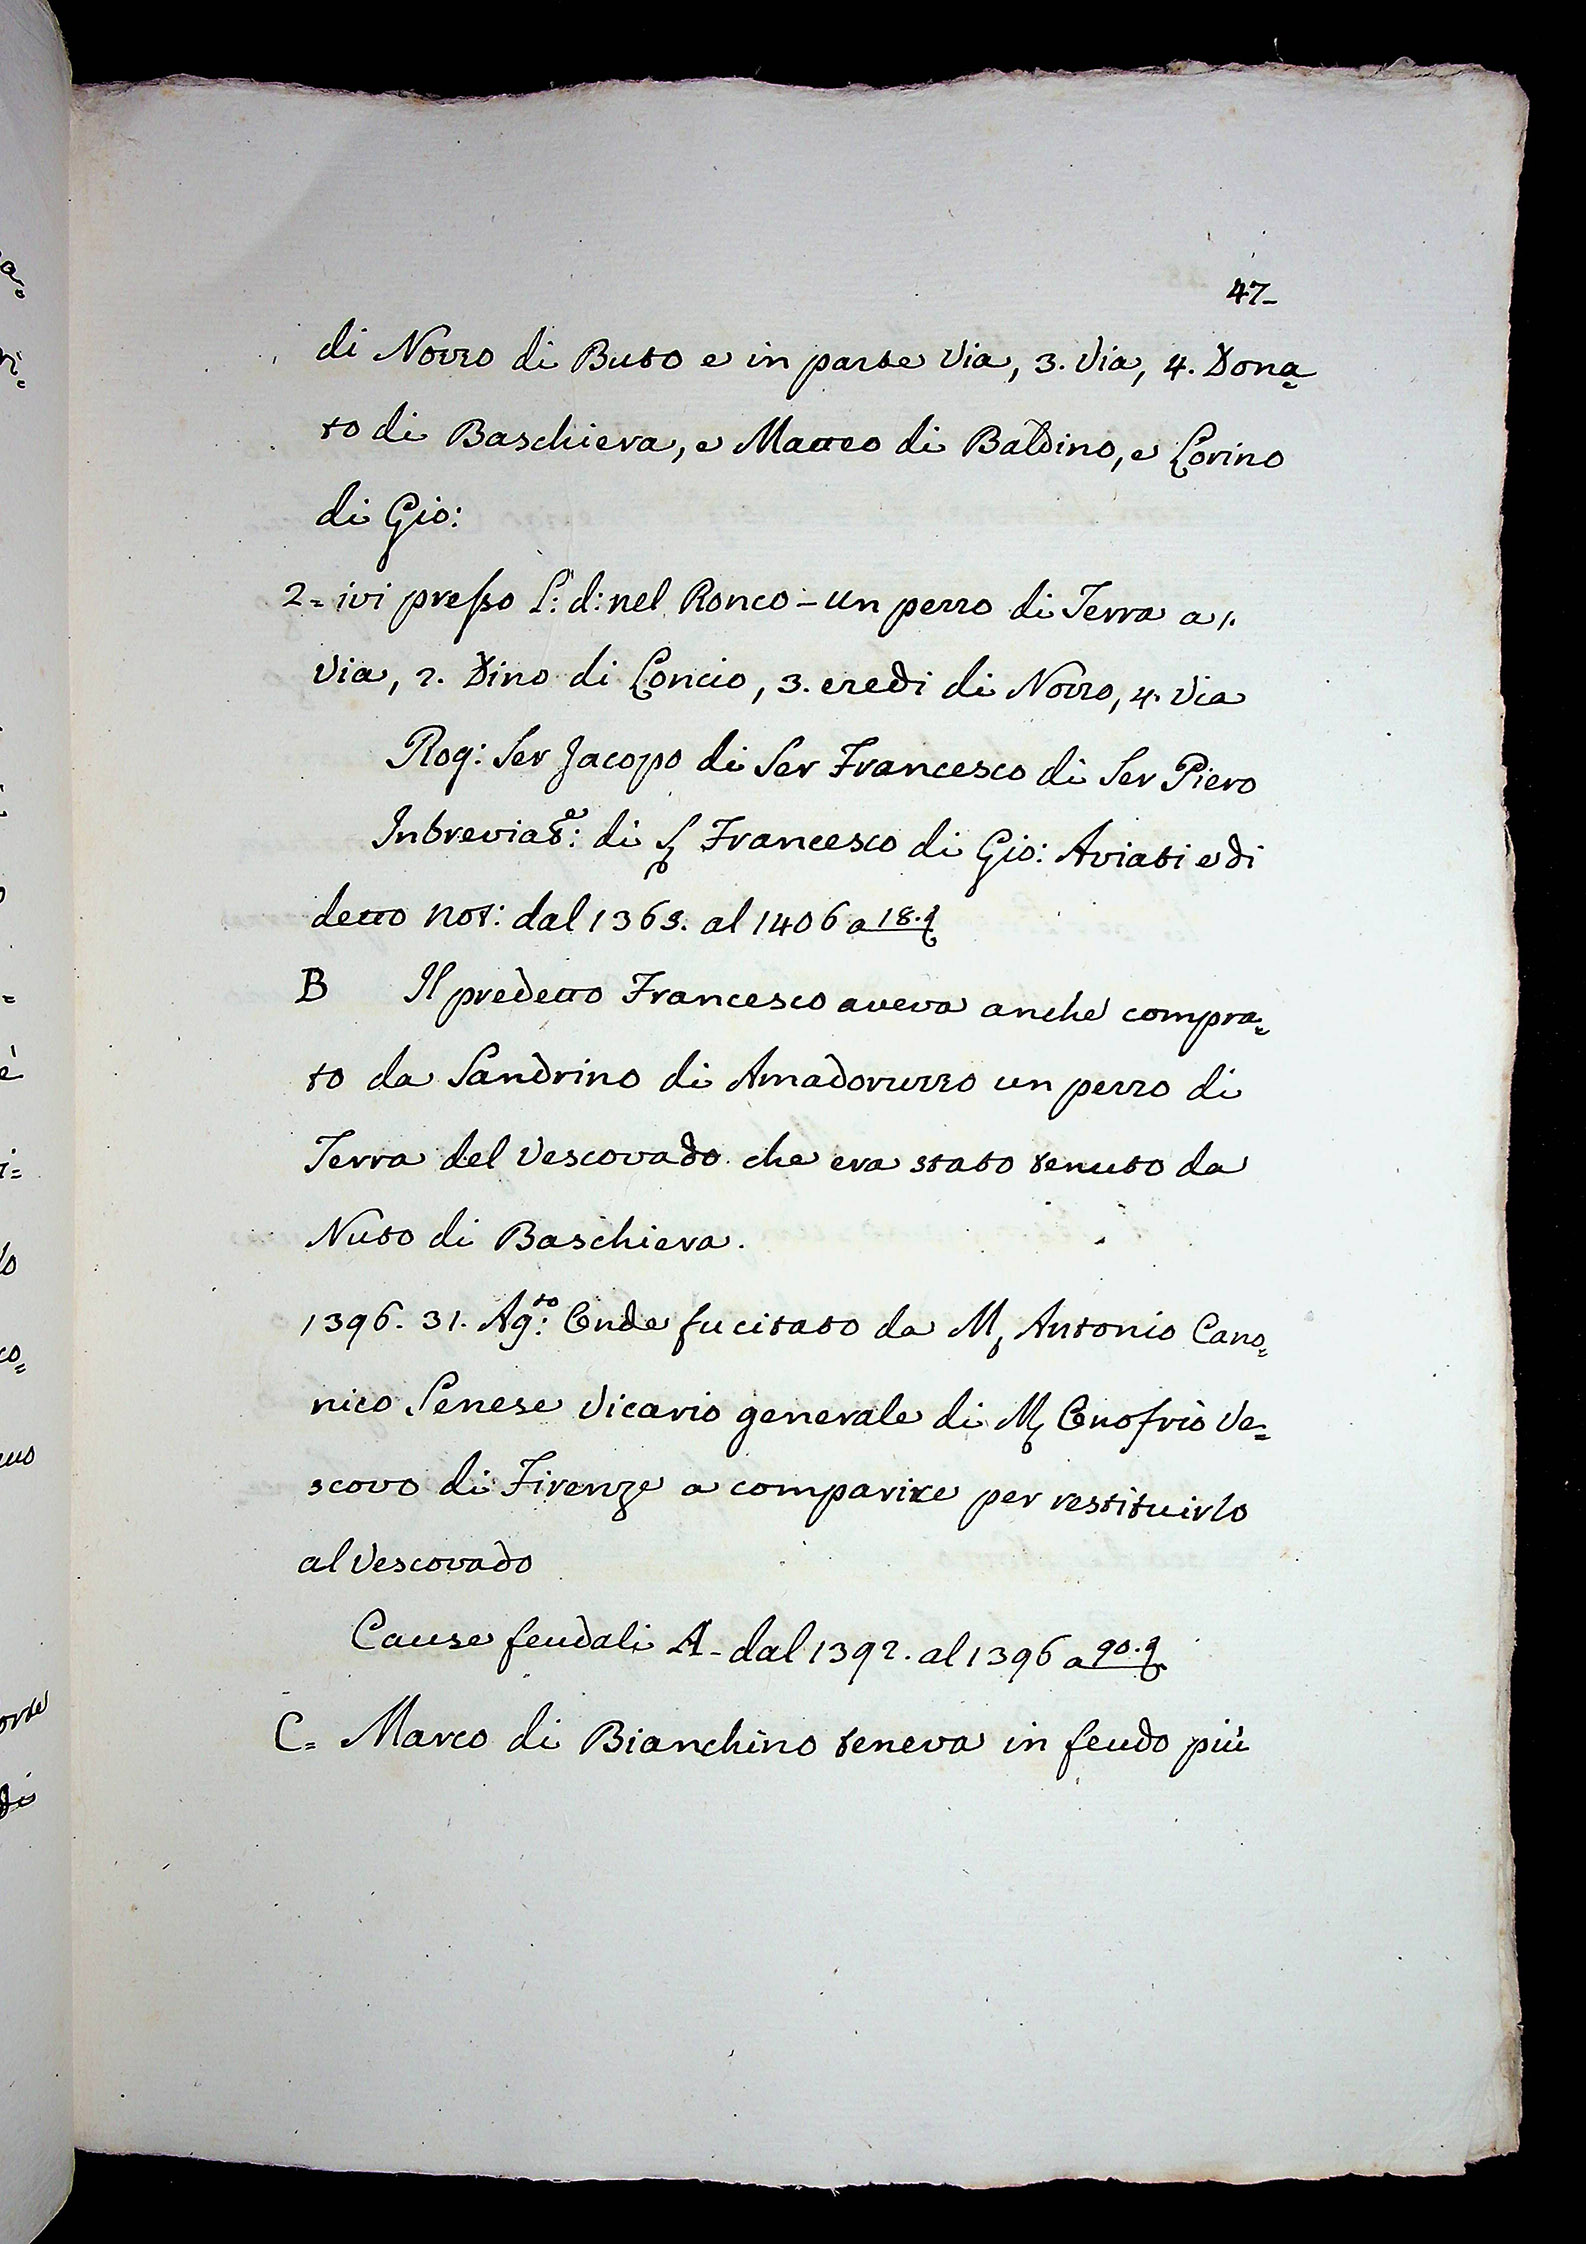 47-
di Nozzo di Buto e in parte Via, 3. Via, 4. Dona=
to di Baschiera, e Matteo di Baldino, e Lorino
di Gio:
2= ivi presso L: d: nel Ronco - un pezzo di Terra a 1.
Via, 2. Dino di Concio, 3. eredi di Nozzo, 4. Via
Rog: Ser Jacopo di Ser Francesco di Ser Piero
Inbreviat:e di S. Francesco di Gio: Aviati e di
detto not: dal 1368. al 1406 a 18.
B Il predetto Francesco aveva anche compra=
to da Sandrino di Amadoruzzo un pezzo di
Terra del Vescovado che era stato tenuto da
Nuto di Baschiera.
1396. 31. Ag:to Onde fu citato da M. Antonio Cano=
nico Senese Vicario generale di M. Onofrio Ve=
scovo di Firenze a comparire per restituirlo
al Vescovado
Cause feudali A - dal 1392. al 1396 a 90.
C= Marco di Bianchino teneva in feudo più